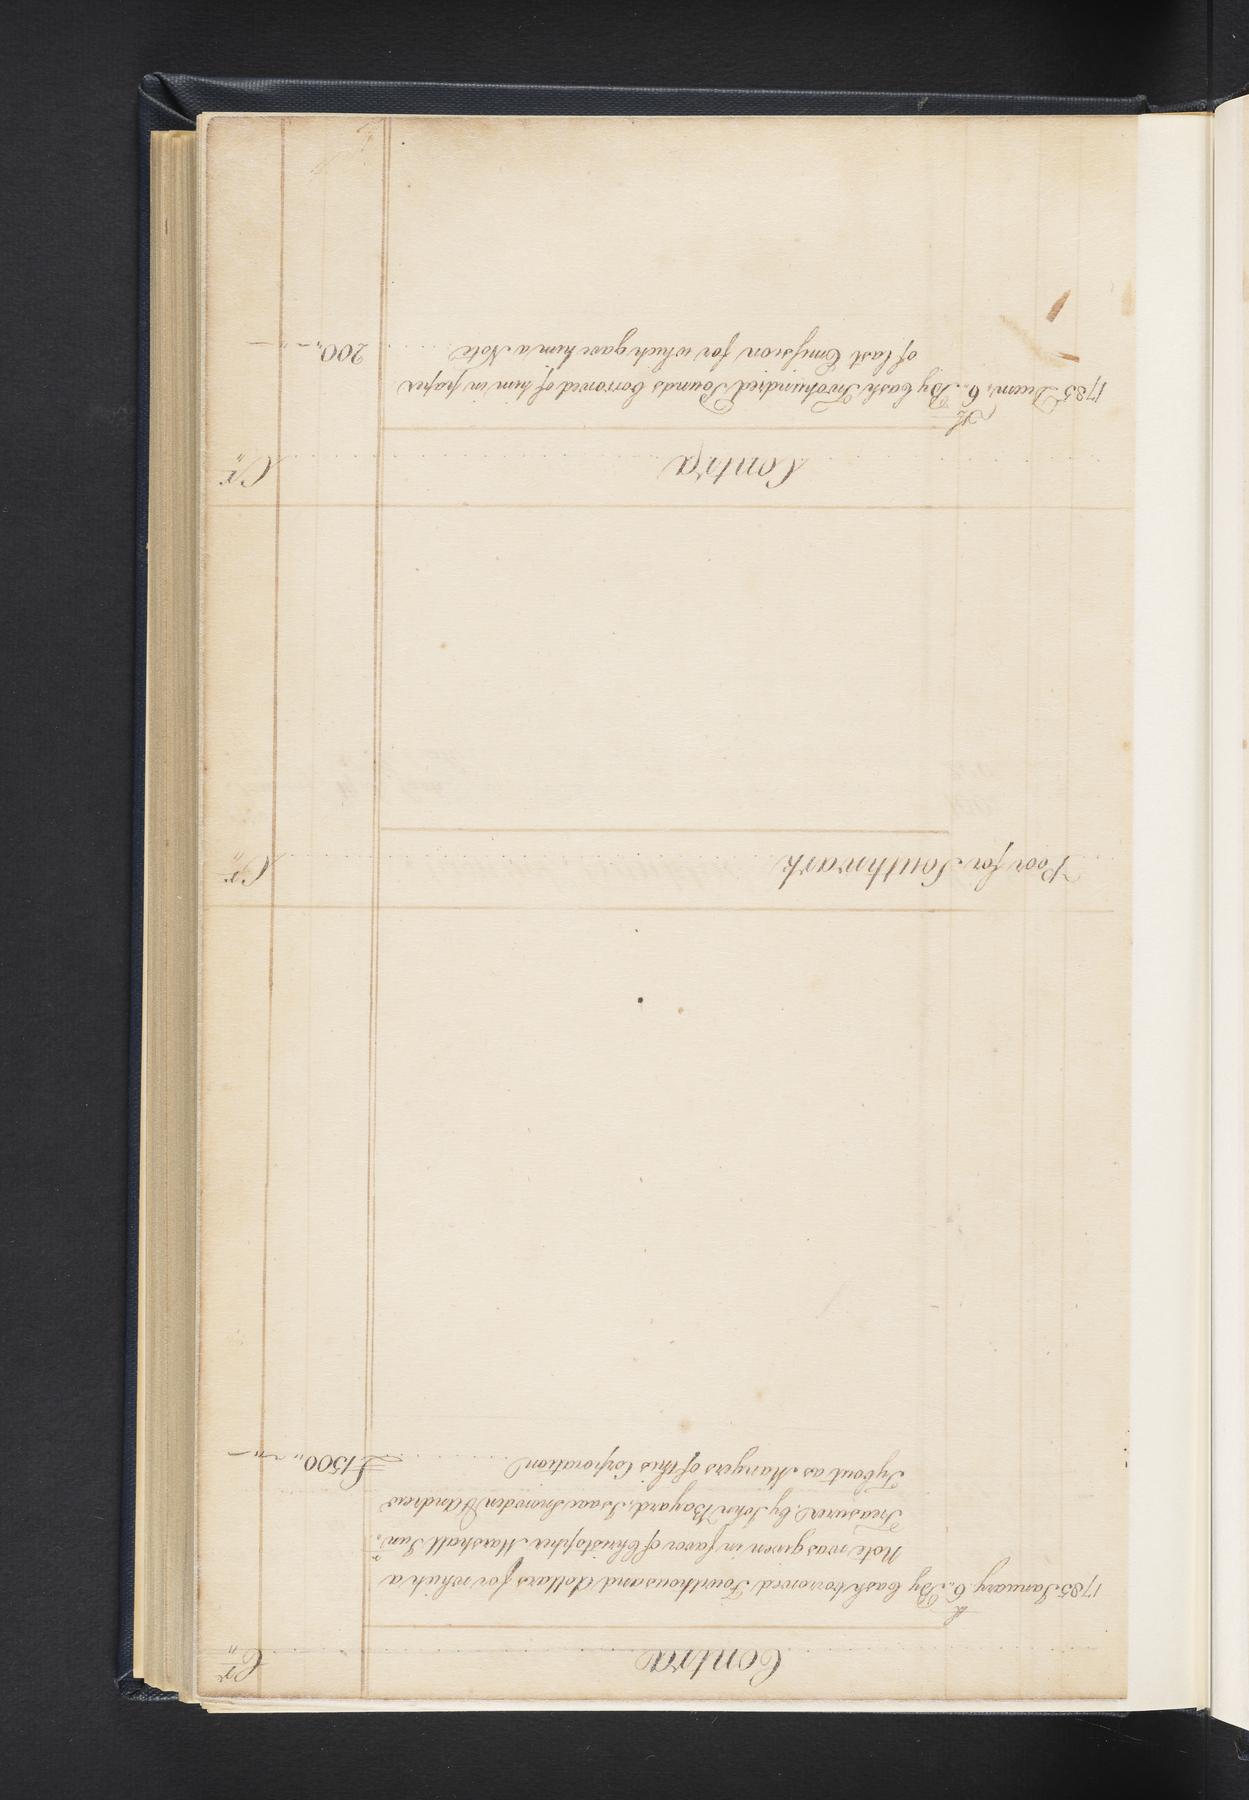 Contra Cr
1785 January 6th By Cash borrowed Fourthousand dollars for which a
Note was given in favor of Christopher Marshall Junr
Treasurer, by John Bayard, Isaac Snowden & Andrew
Tybout as Mangers of this Corporation £1500 " - " -
Poor for Southwark Cr
Contra Cr
1785 Decem. 6th By Cash Twohundred Pounds borrowed of him in paper
of last Emission for which gave him a Note 200 " - " -